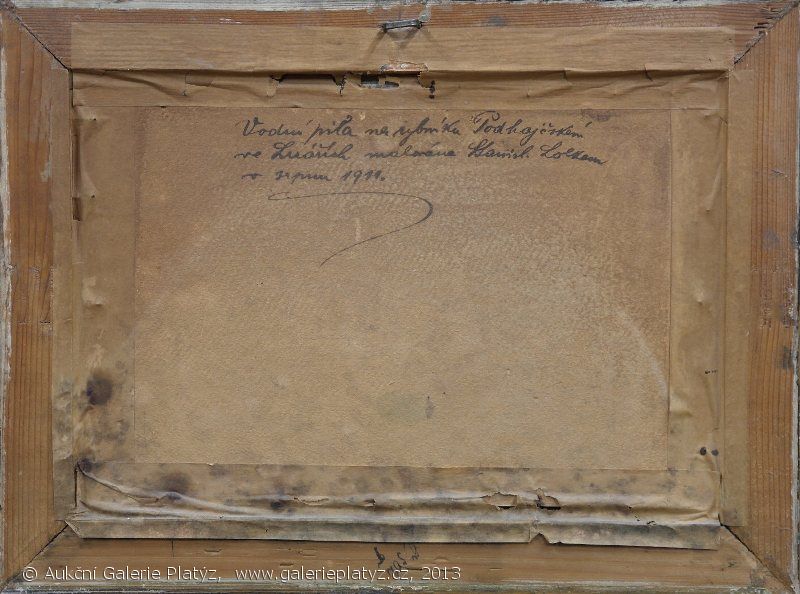 Vodní pila na rybníku Podhajském
ve Lnářích malována Stanisl. Lolkem
v srpnu 1911.
© Aukční Galerie Platýz, www.galerieplatyz.cz, 2013